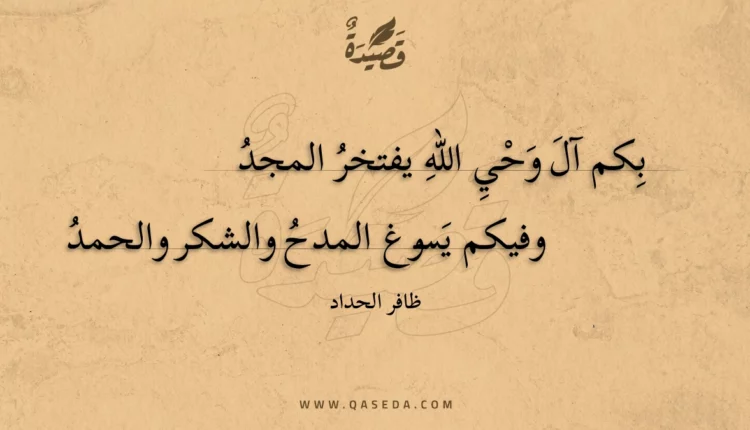 قَصِيْدَةٌ
بِكم آلَ وَحْيِ اللهِ يفتخرُ المجدُ
وفيكم يَسوغ المدحُ والشكر والحمدُ
ظافر الحداد
WWW.QASEDA.COM